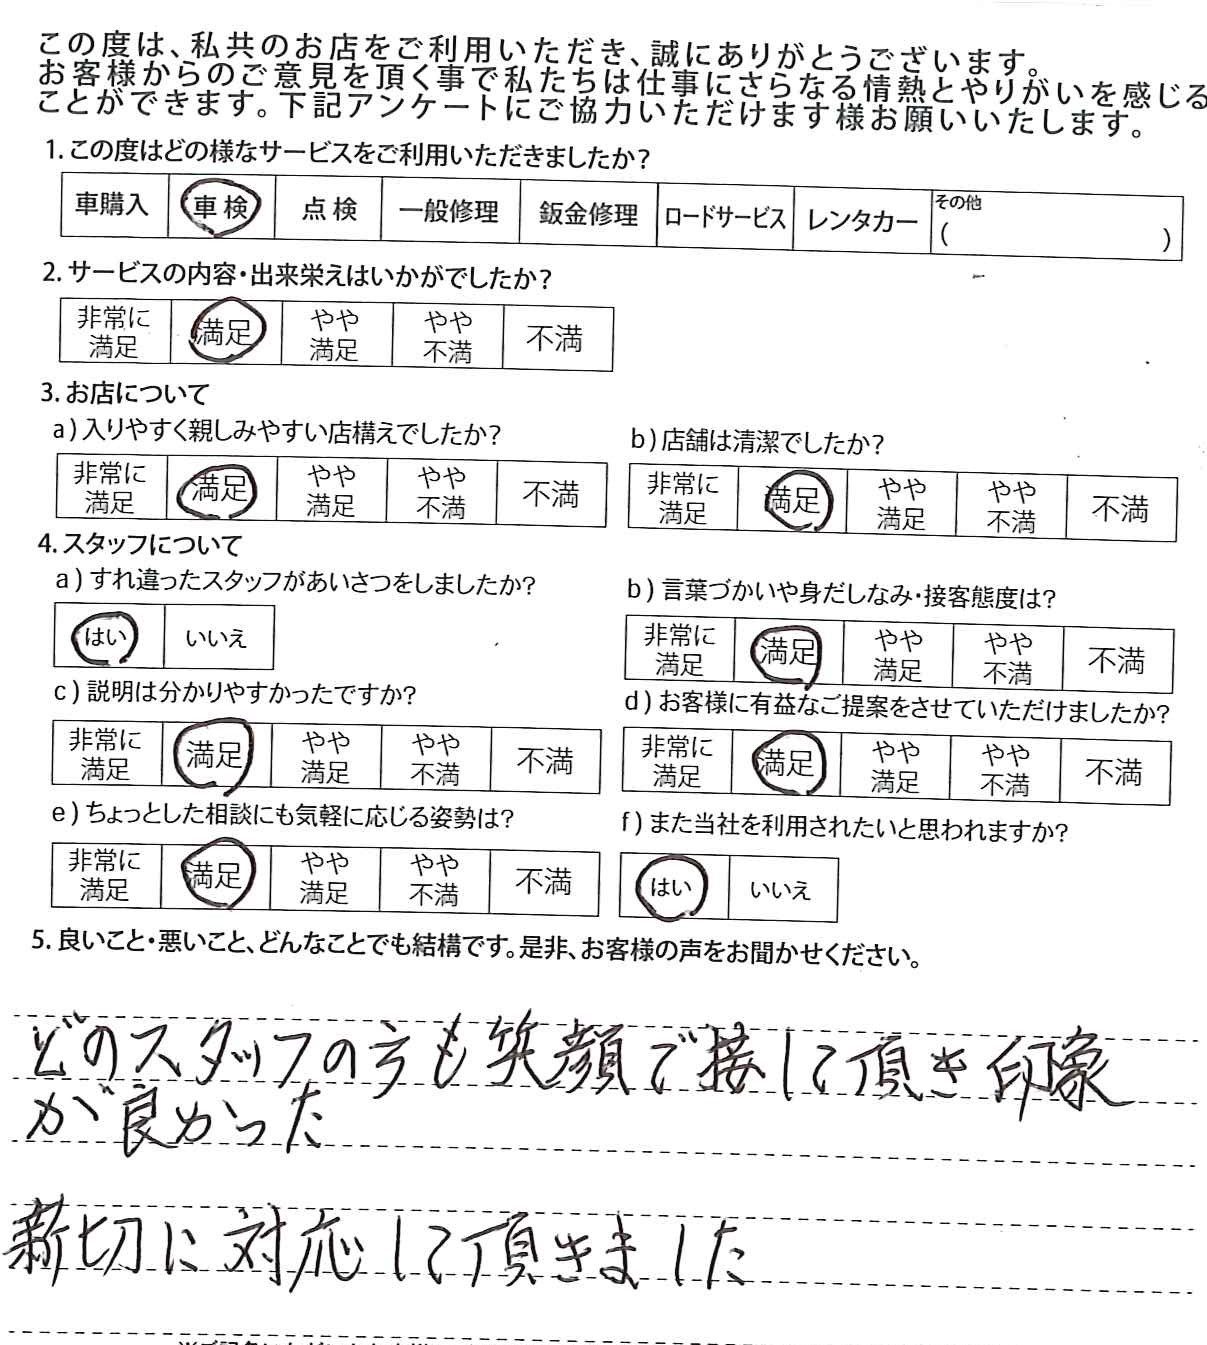 この度は、私共のお店をご利用いただき、誠にありがとうございます。
お客様からのご意見を頂く事で私たちは仕事にさらなる情熱とやりがいを感じる
ことができます。下記アンケートにご協力いただけます様お願いいたします。
1. この度はどの様なサービスをご利用いただきましたか?
車購入 車検 点検 一般修理 鈑金修理 ロードサービス レンタカー その他 ( )
2. サービスの内容・出来栄えはいかがでしたか?
非常に満足 満足 やや満足 やや不満 不満
3. お店について
a) 入りやすく親しみやすい店構えでしたか?
非常に満足 満足 やや満足 やや不満 不満
b) 店舗は清潔でしたか?
非常に満足 満足 やや満足 やや不満 不満
4. スタッフについて
a) すれ違ったスタッフがあいさつをしましたか?
はい いいえ
b) 言葉づかいや身だしなみ・接客態度は?
非常に満足 満足 やや満足 やや不満 不満
c) 説明は分かりやすかったですか?
非常に満足 満足 やや満足 やや不満 不満
d) お客様に有益なご提案をさせていただけましたか?
非常に満足 満足 やや満足 やや不満 不満
e) ちょっとした相談にも気軽に応じる姿勢は?
非常に満足 満足 やや満足 やや不満 不満
f) また当社を利用されたいと思われますか?
はい いいえ
5. 良いこと・悪いこと、どんなことでも結構です。是非、お客様の声をお聞かせください。
どのスタッフの方も笑顔で接して頂き印象
が良かった
新切に対応して頂きました